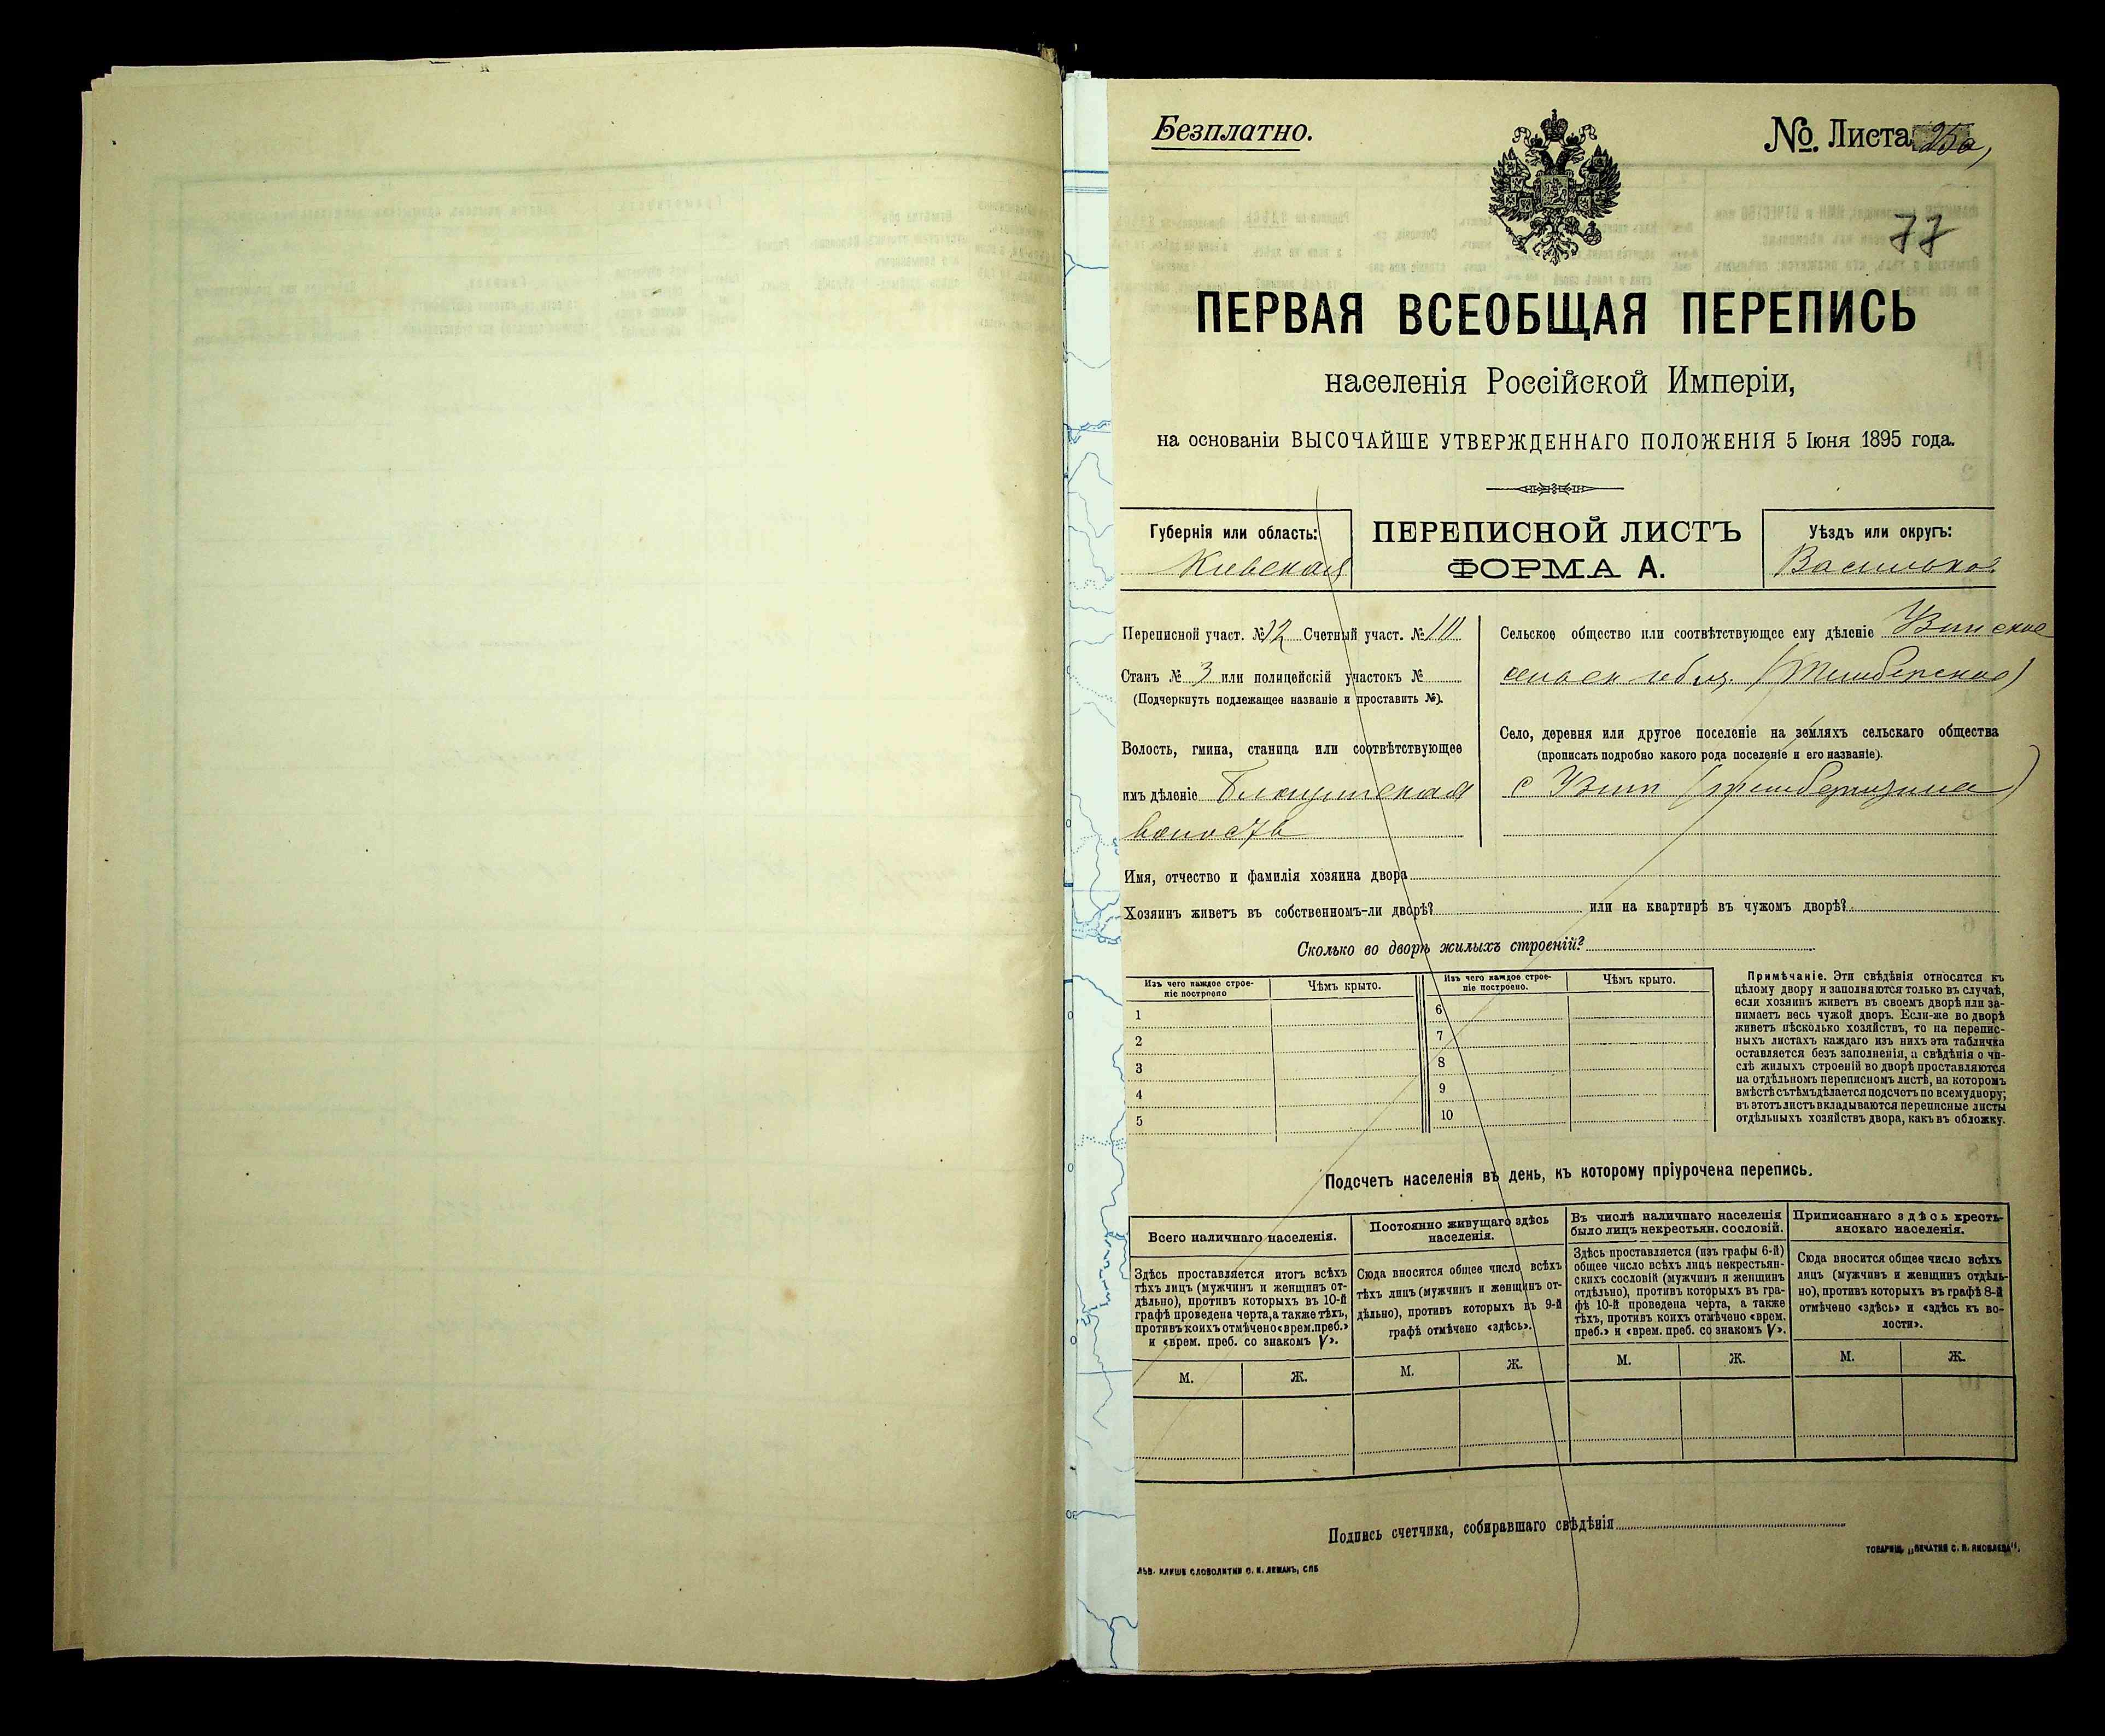 Безплатно.
№ Листа 25а,
77
ПЕРВАЯ ВСЕОБЩАЯ ПЕРЕПИСЬ
населенія Россійской Имперіи,
на основаніи ВЫСОЧАЙШЕ УТВЕРЖДЕННАГО ПОЛОЖЕНІЯ 5 Іюня 1895 года.
Губернія или область:
Киевская
ПЕРЕПИСНОЙ ЛИСТЪ
ФОРМА А.
Уѣздъ или округъ:
Васильков.
Переписной участ. № 12 Счетный участ. №
Станъ № 3 или полицейскій участокъ №
(Подчеркнуть подлежащее названіе и проставить №).
Волость, гмина, станица или соотвѣтствующее
имъ дѣленіе
волость
Сельское общество или соотвѣтствующее ему дѣленіе Узинское
Село, деревня или другое поселеніе на земляхъ сельскаго общества
(прописать подробно какого рода поселеніе и его названіе).
с Узин
Имя, отчество и фамилія хозяина двора
Хозяинъ живетъ въ собственномъ-ли дворѣ? или на квартирѣ въ чужомъ дворѣ?
Сколько во дворѣ жилыхъ строеній?
Изъ чего каждое строе-
ніе построено
Чѣмъ крыто.
Изъ чего каждое строе-
ніе построено.
Чѣмъ крыто.
1
2
3
4
5
6
7
8
9
10
Примѣчаніе. Эти свѣдѣнія относятся къ
цѣлому двору и заполняются только въ случаѣ,
если хозяинъ живетъ въ своемъ дворѣ или за-
нимаетъ весь чужой дворъ. Если-же во дворѣ
живетъ нѣсколько хозяйствъ, то на перепис-
ныхъ листахъ каждаго изъ нихъ эта табличка
оставляется безъ заполненія, а свѣдѣнія о чи-
слѣ жилыхъ строеній во дворѣ проставляются
на отдѣльномъ переписномъ листѣ, на которомъ
вмѣстѣ съ тѣмъ дѣлается подсчетъ по всему двору;
въ этотъ листъ вкладываются переписные листы
отдѣльныхъ хозяйствъ двора, какъ въ обложку.
Подсчетъ населенія въ день, къ которому пріурочена перепись.
Всего наличнаго населенія.
Здѣсь проставляется итогъ всѣхъ
тѣхъ лицъ (мужчинъ и женщинъ от-
дѣльно), противъ которыхъ въ 10-й
графѣ проведена черта, а также тѣхъ,
противъ коихъ отмѣчено «врем. преб.»
и «врем. преб. со знакомъ V».
М.
Ж.
Постоянно живущаго здѣсь
населенія.
Сюда вносится общее число всѣхъ
тѣхъ лицъ (мужчинъ и женщинъ от-
дѣльно), противъ которыхъ въ 9-й
графѣ отмѣчено «здѣсь».
М.
Ж.
Въ числѣ наличнаго населенія
было лицъ некрестьян. сословій.
Здѣсь проставляется (изъ графы 6-й)
общее число всѣхъ лицъ некрестьян-
скихъ сословій (мужчинъ и женщинъ
отдѣльно), противъ которыхъ въ гра-
фѣ 10-й проведена черта, а также
тѣхъ, противъ коихъ отмѣчено «врем.
преб.» и «врем. преб. со знакомъ V».
М.
Ж.
Приписаннаго здѣсь кресть-
янскаго населенія.
Сюда вносится общее число всѣхъ
лицъ (мужчинъ и женщинъ отдѣль-
но), противъ которыхъ въ графѣ 8-й
отмѣчено «здѣсь» и «здѣсь къ во-
лости».
М.
Ж.
Подпись счетчика, собиравшаго свѣдѣнія
ТОВАРИЩ. „ПЕЧАТНЯ С. П. ЯКОВЛЕВА".
КЛИШЕ СЛОВОЛИТНИ О. И. ЛЕМАНЪ, СПБ